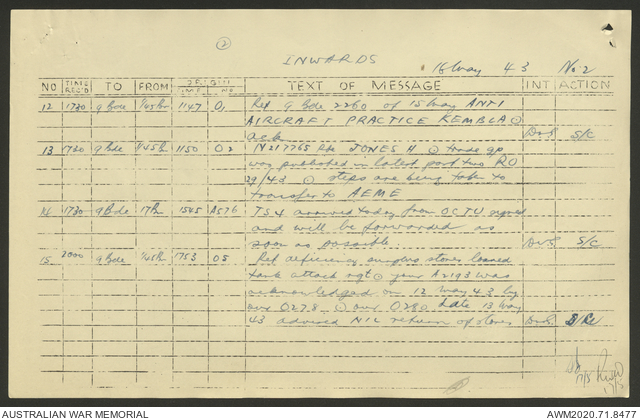 2
INWARDS
16 May 43 No 2
NO TIME REC'D TO FROM ORIGIN TIME NO TEXT OF MESSAGE INT ACTION
12 1730 9 Bde 1/45 Bn 1147 O1 Ref 9 Bde 2260 of 15 May ANTI
AIRCRAFT PRACTICE KEMBLA
ack S/C
13 1730 9 Bde 1/45 Bn 1150 O2 N217765 Pte JONES H trade gp
was published in latest part two RO
29/43 steps are being taken to
transfer to AEME
14 1730 9 Bde 17 Bn 1545 A576 TS4 arrived today from OCTU signed
and will be forwarded as
soon as possible. S/C
15 2000 9 Bde 1/45 Bn 1753 05 Ref deficiency surplus stores loaned
tank attack rgt your A2193 was
acknowledged on 12 May 43 by
our 0278 our 0280 date 13 May
43 advised NIL return of stores
AUSTRALIAN WAR MEMORIAL AWM2020.71.8477